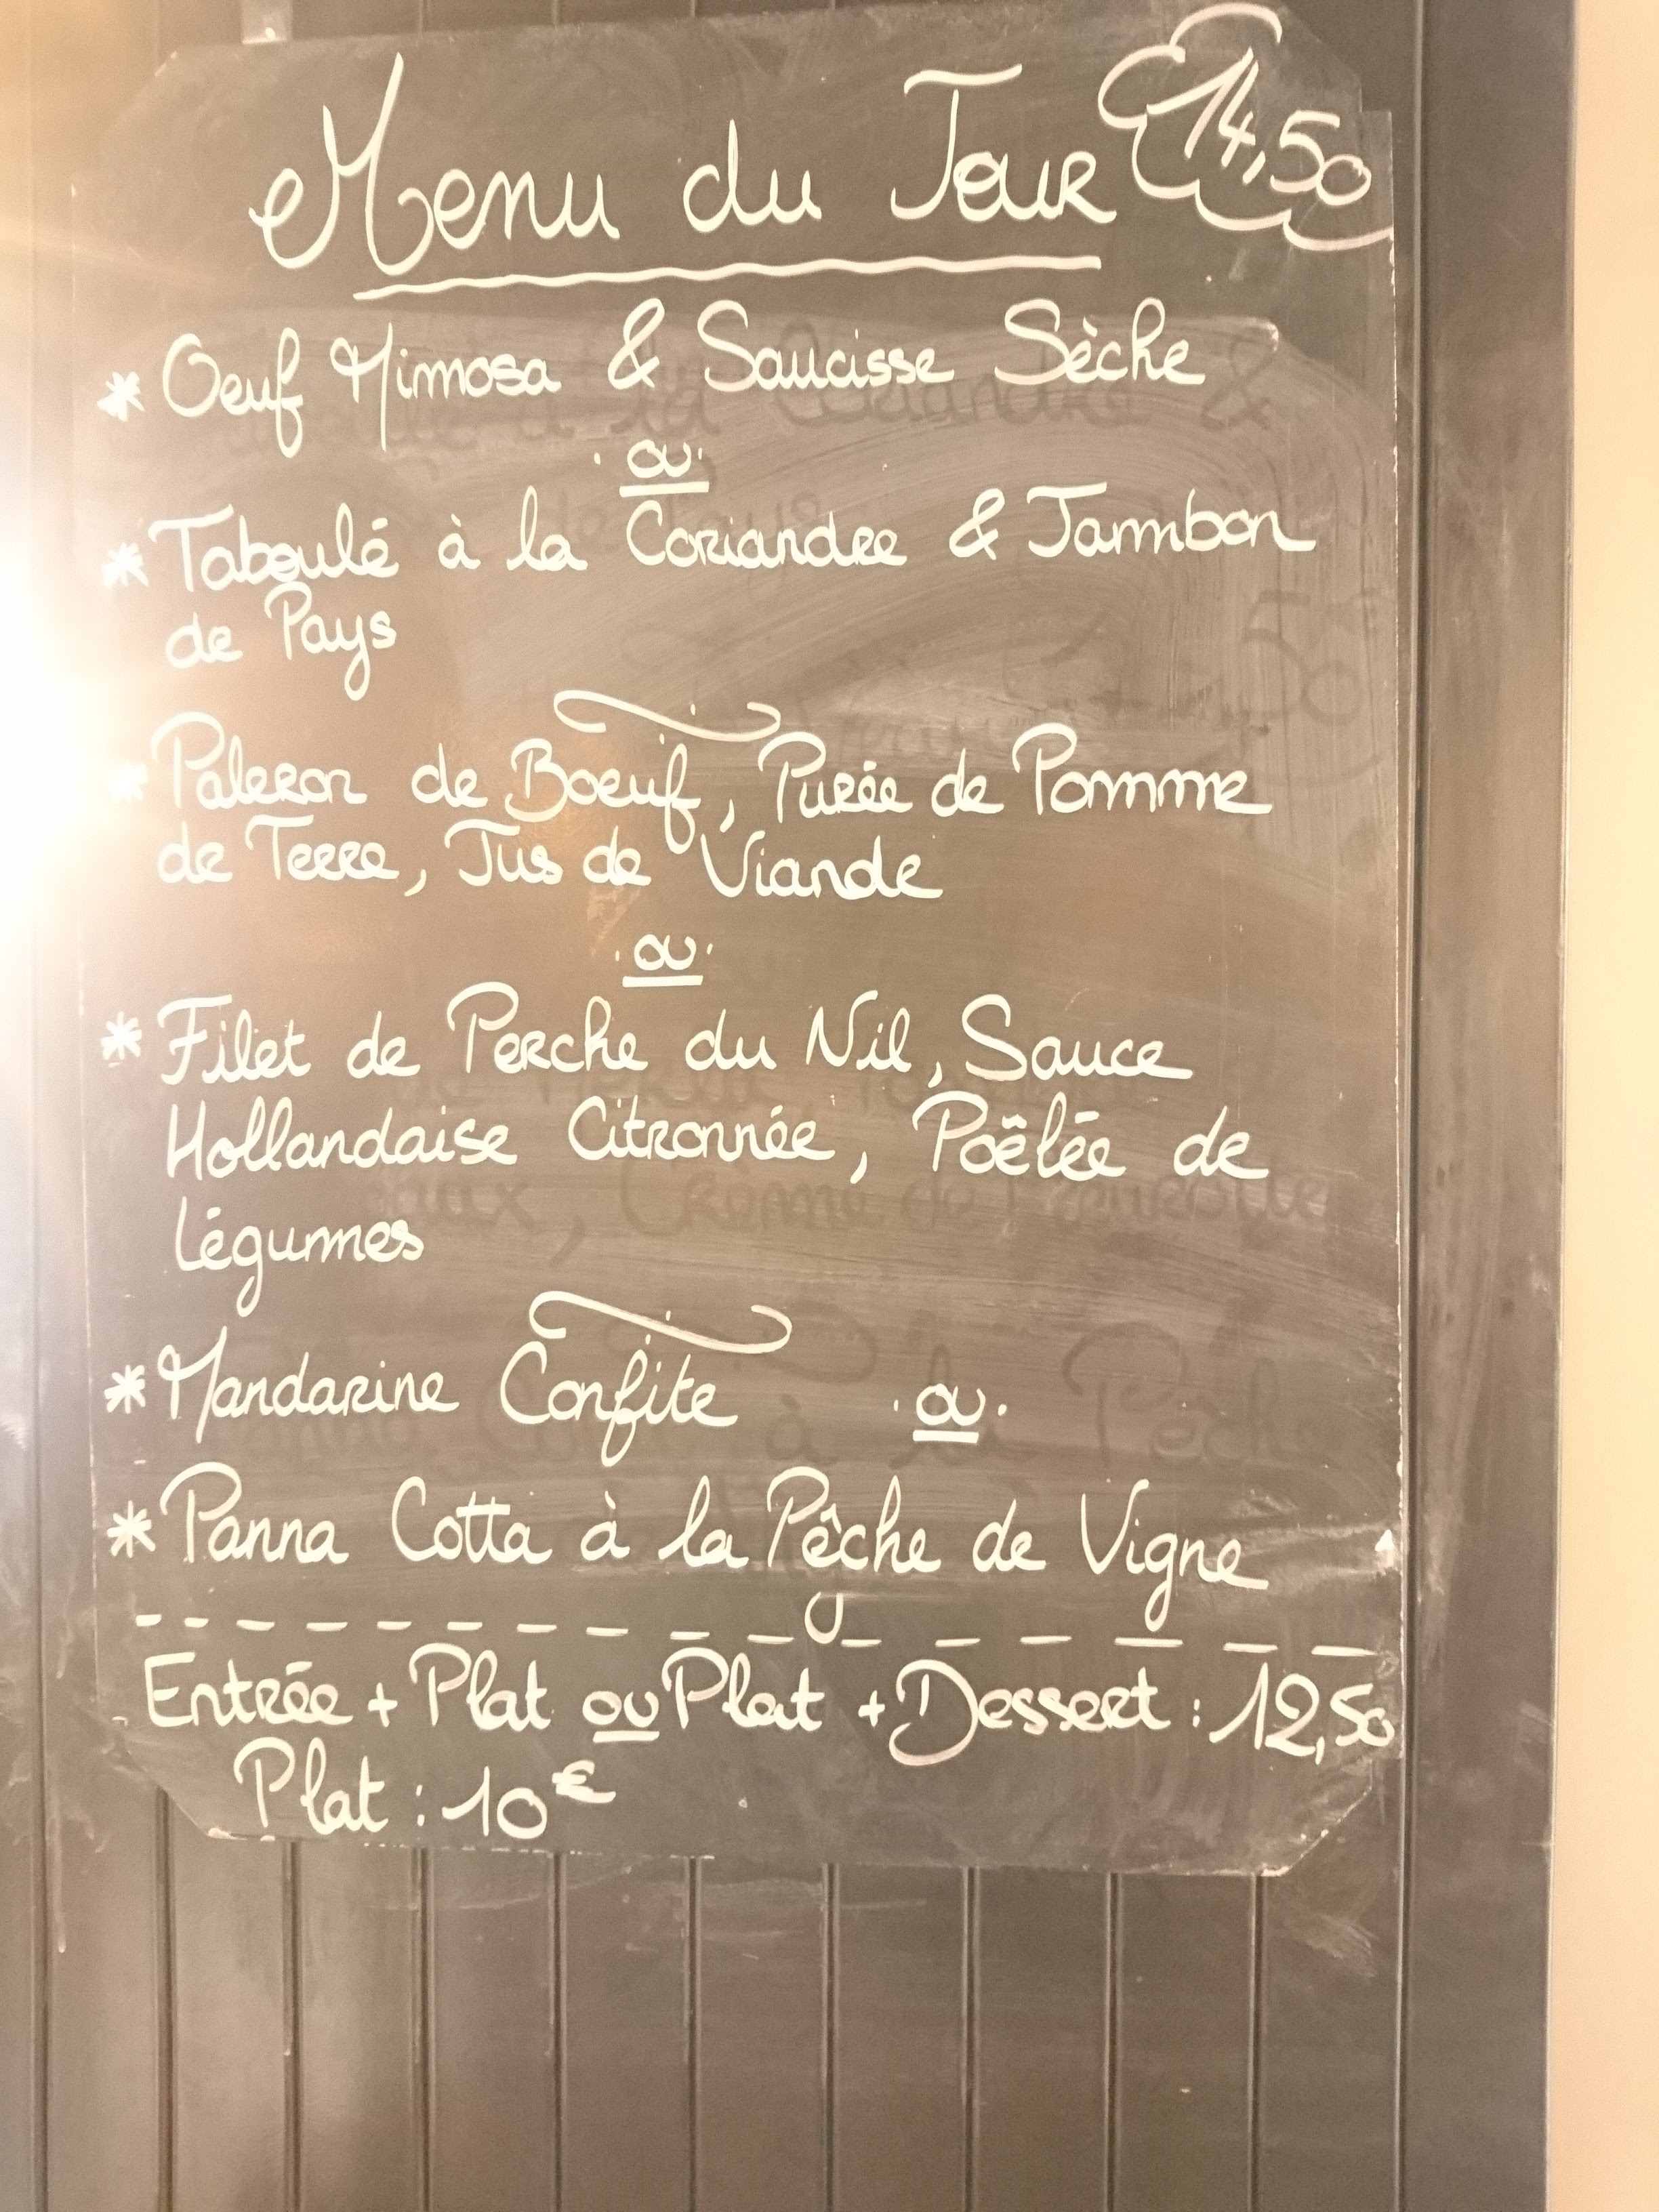 Menu du Jour 14,50
* Oeuf Mimosa & Saucisse Sèche
ou
* Taboulé à la Coriandre & Jambon
de Pays
* Paleron de Boeuf, Purée de Pomme
de Terre, Jus de Viande
ou
* Filet de Perche du Nil, Sauce
Hollandaise Citronnée, Poëlée de
légumes
* Mandarine Confite ou
* Panna Cotta à la Pêche de Vigne
Entrée + Plat ou Plat + Dessert : 12,50
Plat : 10€